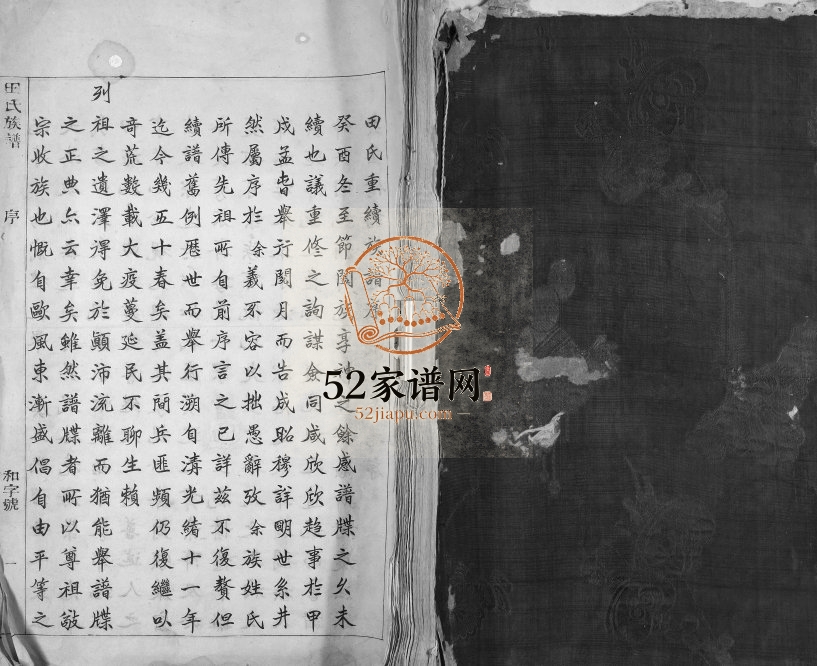 田氏重續族譜序
癸酉冬至節閤族享之餘感譜牒之久未
續也議重修之詢謀僉同咸欣欣趋事於甲
戌孟皆舉行閱月而告成昭穆詳明世系井
然屬序於余義不容以拙愚辭攷余族姓氏
所傳先祖所自前序言之已詳茲不復贅但
續譜舊例厯世而舉行溯自清光緒十一年
迄今幾五十春矣盖其間兵匪頻仍復繼以
奇荒數載大疫蔓延民不聊生賴
列祖之遺澤得免於顚沛流離而猶能舉譜牒
之正典亦云幸矣雖然譜牒者所以尊祖敬
宗收族也慨自歐風東漸盛倡自由平等之
田氏族譜
序
和字號
一
52家谱网
52jiapu.com